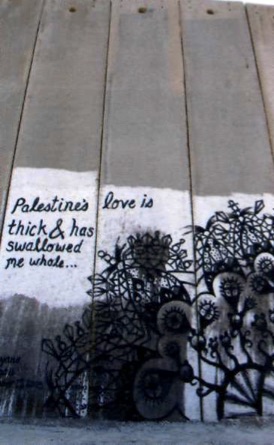 Palestine's love is
thick & has
swallowed
me whole...